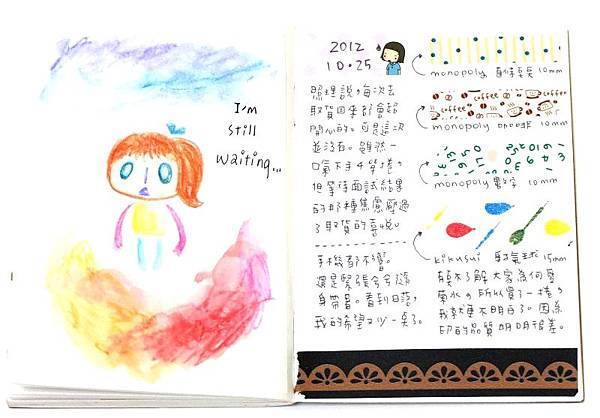 I'm
still
waiting...
2012
10.25
照理說,每次去
取貨回來都會超
開心的。可是這次
並沒有。雖然一
口氣入手4捲,
但等待面試結果
的那種焦慮壓過
了取貨的喜悅。
手機都不響。
還是緊張兮兮隨
身帶著。看到日落,
我的希望又少一點了。
monopoly 10mm
coffee coffee
coffee
monopoly 10mm
monopoly 數字 10mm
kikusui 射氣球 15mm
不了解大家為何愛
菊水,所以買了一捲,
我就更不明白了。因為
印的品質明明很差。